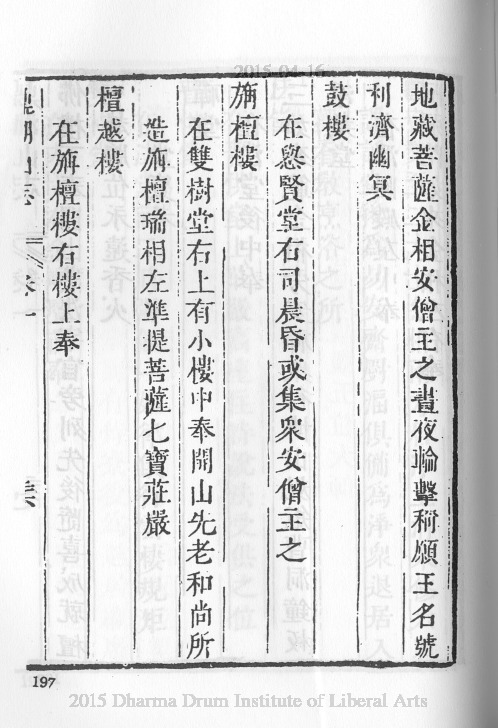 2015-04-16
地藏菩薩金相安僧主之晝夜輪擊稱願王名號
利濟幽冥
鼓樓
在選賢堂右司晨昏或集衆安僧主之
旃檀樓
在雙樹堂右上有小樓中奉開山先老和尚所
造旃檀瑞相左準提菩薩七寶莊嚴
檀越樓
在旃檀樓右樓上奉
鼎湖山志
卷一
197
2015 Dharma Drum Institute of Liberal Arts